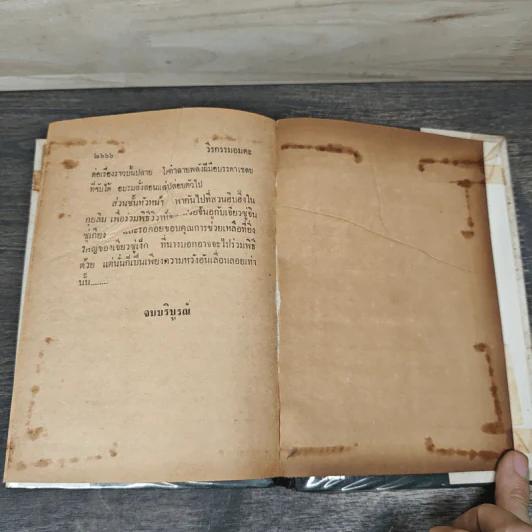 ๒๖๖๖ วีรกรรมอมตะ
ต่อเรื่องราวบั้นปลาย ได้ทำลายพลังฝีมือบรรดาเชลย
ที่จับได้ อบรมสั่งสอนแล้วปล่อยตัวไป
ส่วนชั้นหัวหน้า พากันไปที่สวนฮิบฮึงใน
กุยลิ้ม เพื่อร่วมพิธีวิวาห์ กับเจียวซู่จิน
ซู่เกียง และรอคอยขอบคุณการช่วยเหลือที่ยิ่ง
ใหญ่ของเจียวซู่เง็ก ที่นางบอกอาจจะไปร่วมพิธี
ด้วย แต่นั่นก็เป็นเพียงความหวังอันเลื่อนลอยเท่า
นั้น.......
จบบริบูรณ์